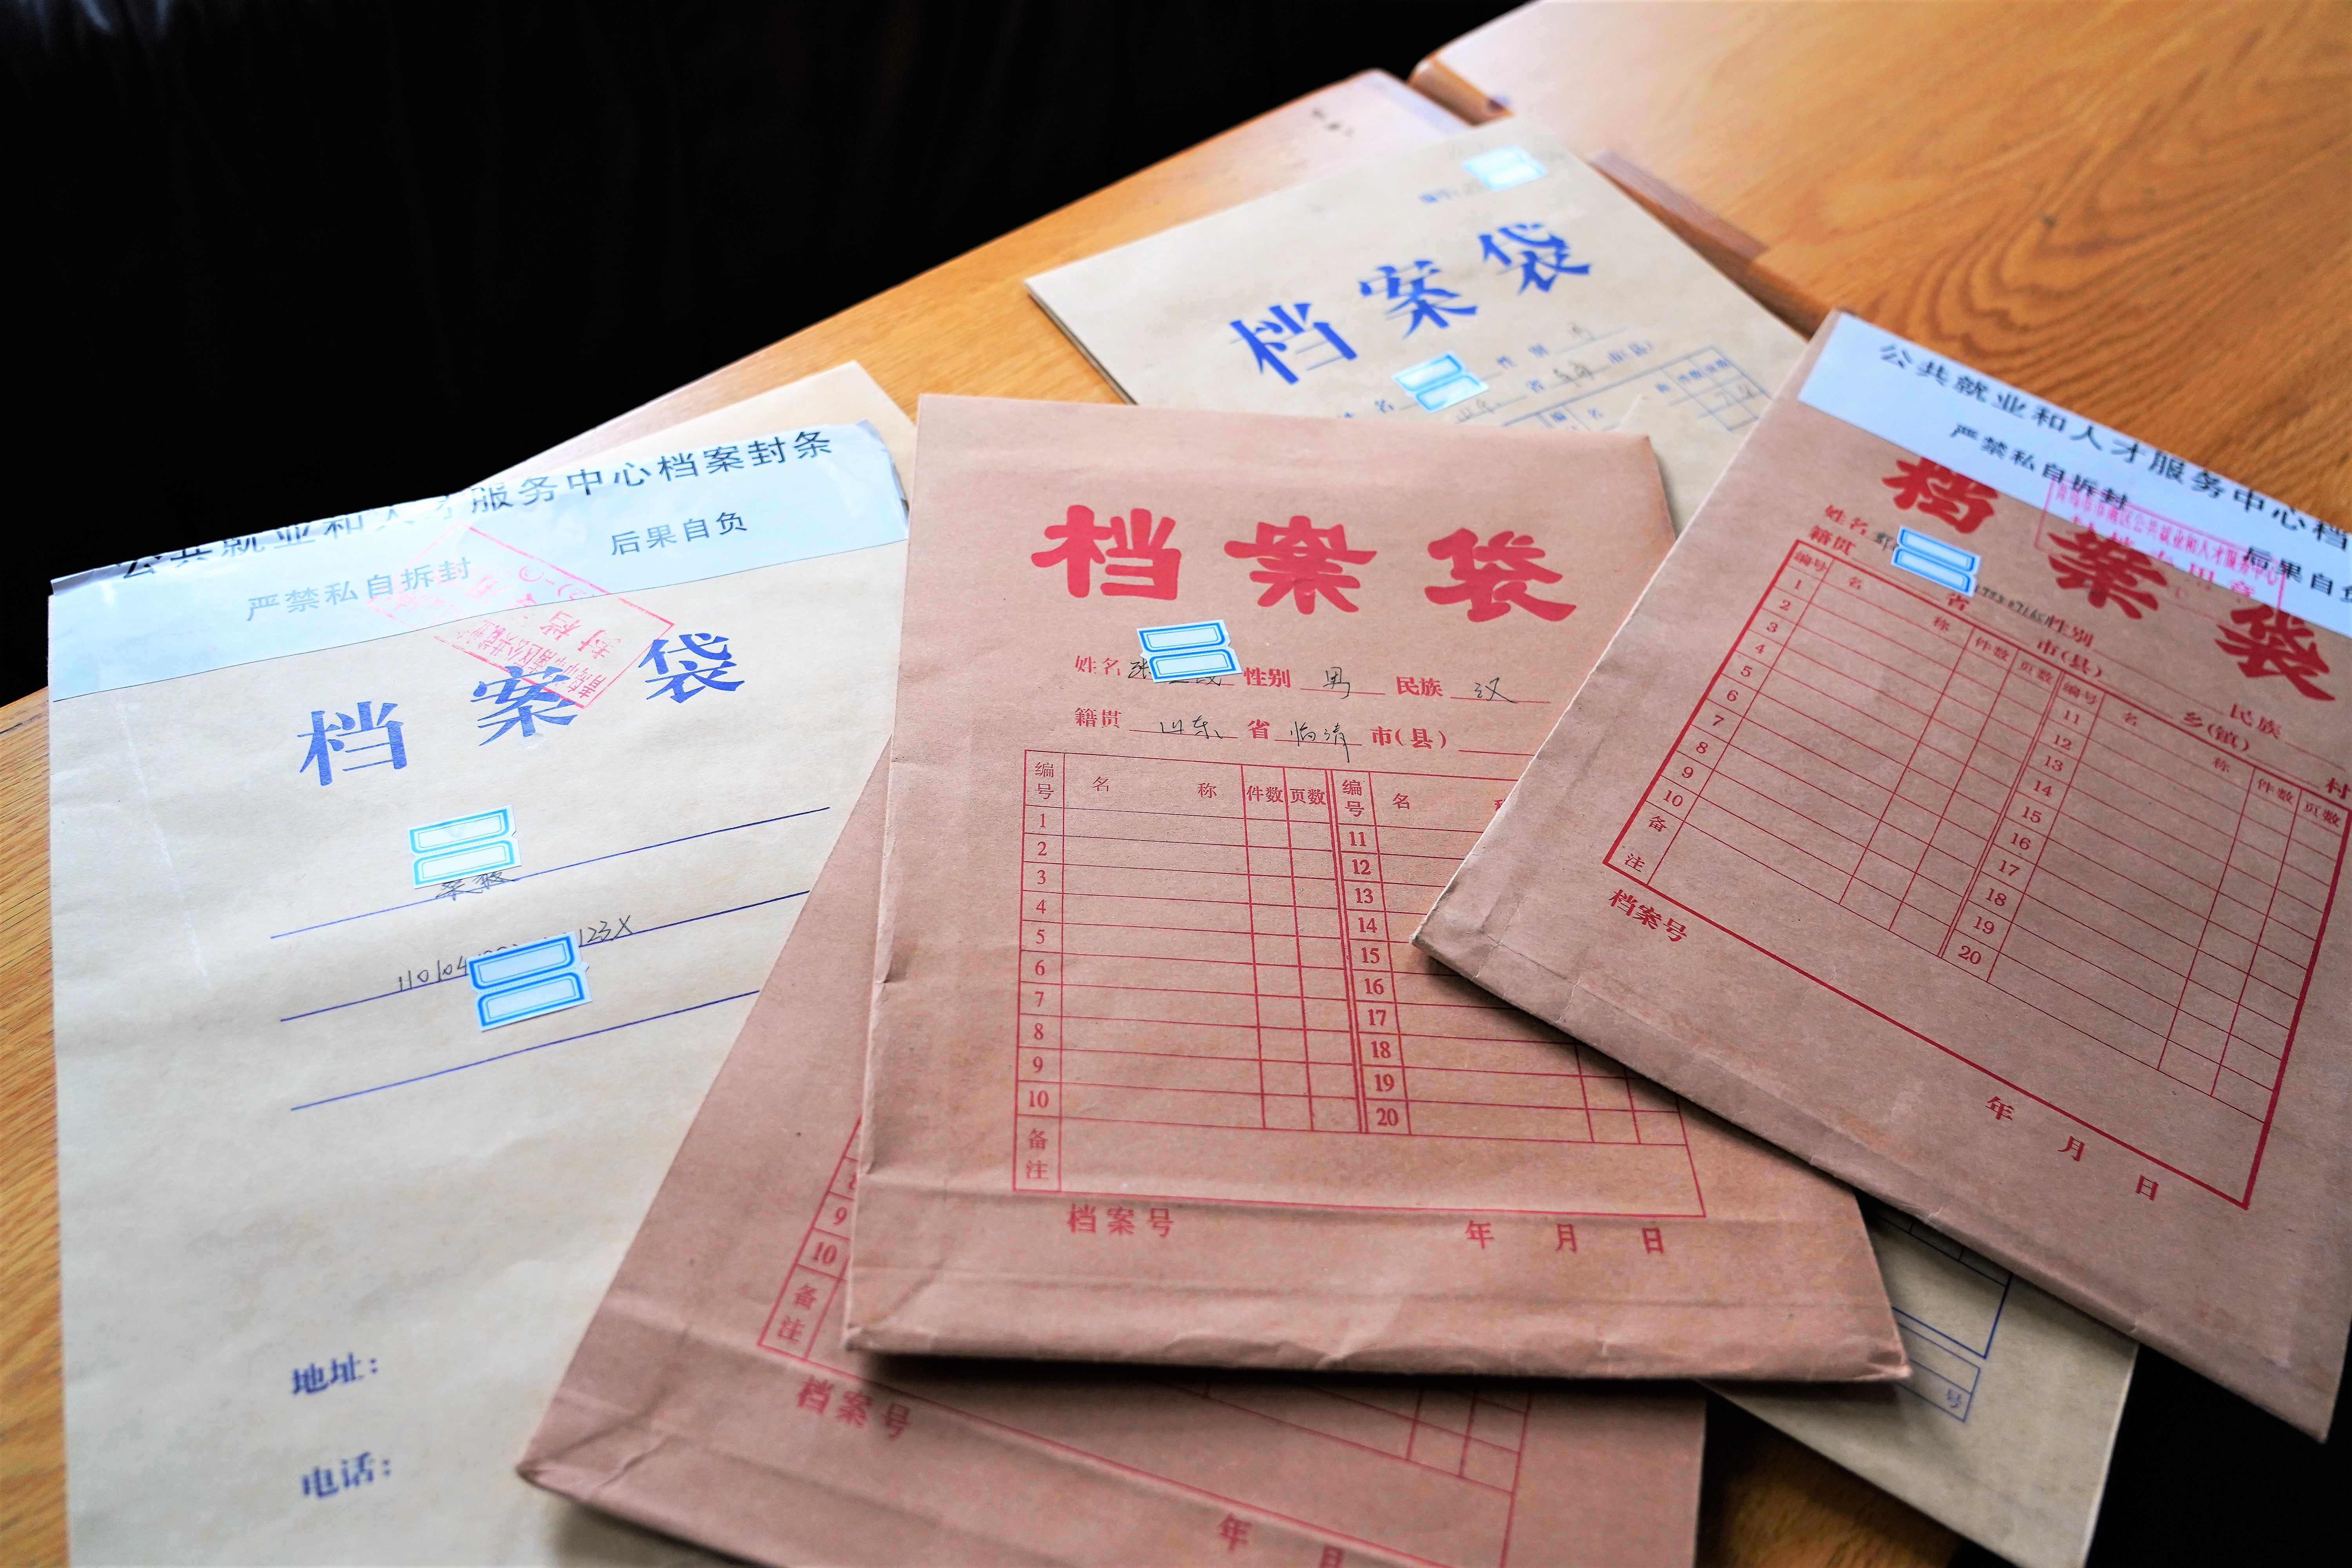 公共就业和人才服务中心档案封条
严禁私自拆封
后果自负
档案袋
123X
地址：
电话：
档案袋
性别
省
档案袋
姓名
性别 男 民族 汉
籍贯 山东 省 临清 市(县)
编号 名 称 件数 页数 编号 名
1 11
2 12
3 13
4 14
5 15
6 16
7 17
8 18
9 19
10 20
备注
档案号
年 月 日
公共就业和人才服务中心档
严禁私自拆封
后果自负
档案袋
姓名
性别
民族
籍贯 省 市(县) 乡(镇) 村
编号 名 称 件数 页数 编号 名 称 件数 页数
1 11
2 12
3 13
4 14
5 15
6 16
7 17
8 18
9 19
10 20
备注
档案号
年 月 日
9
10
备注
档案号
年 月
号